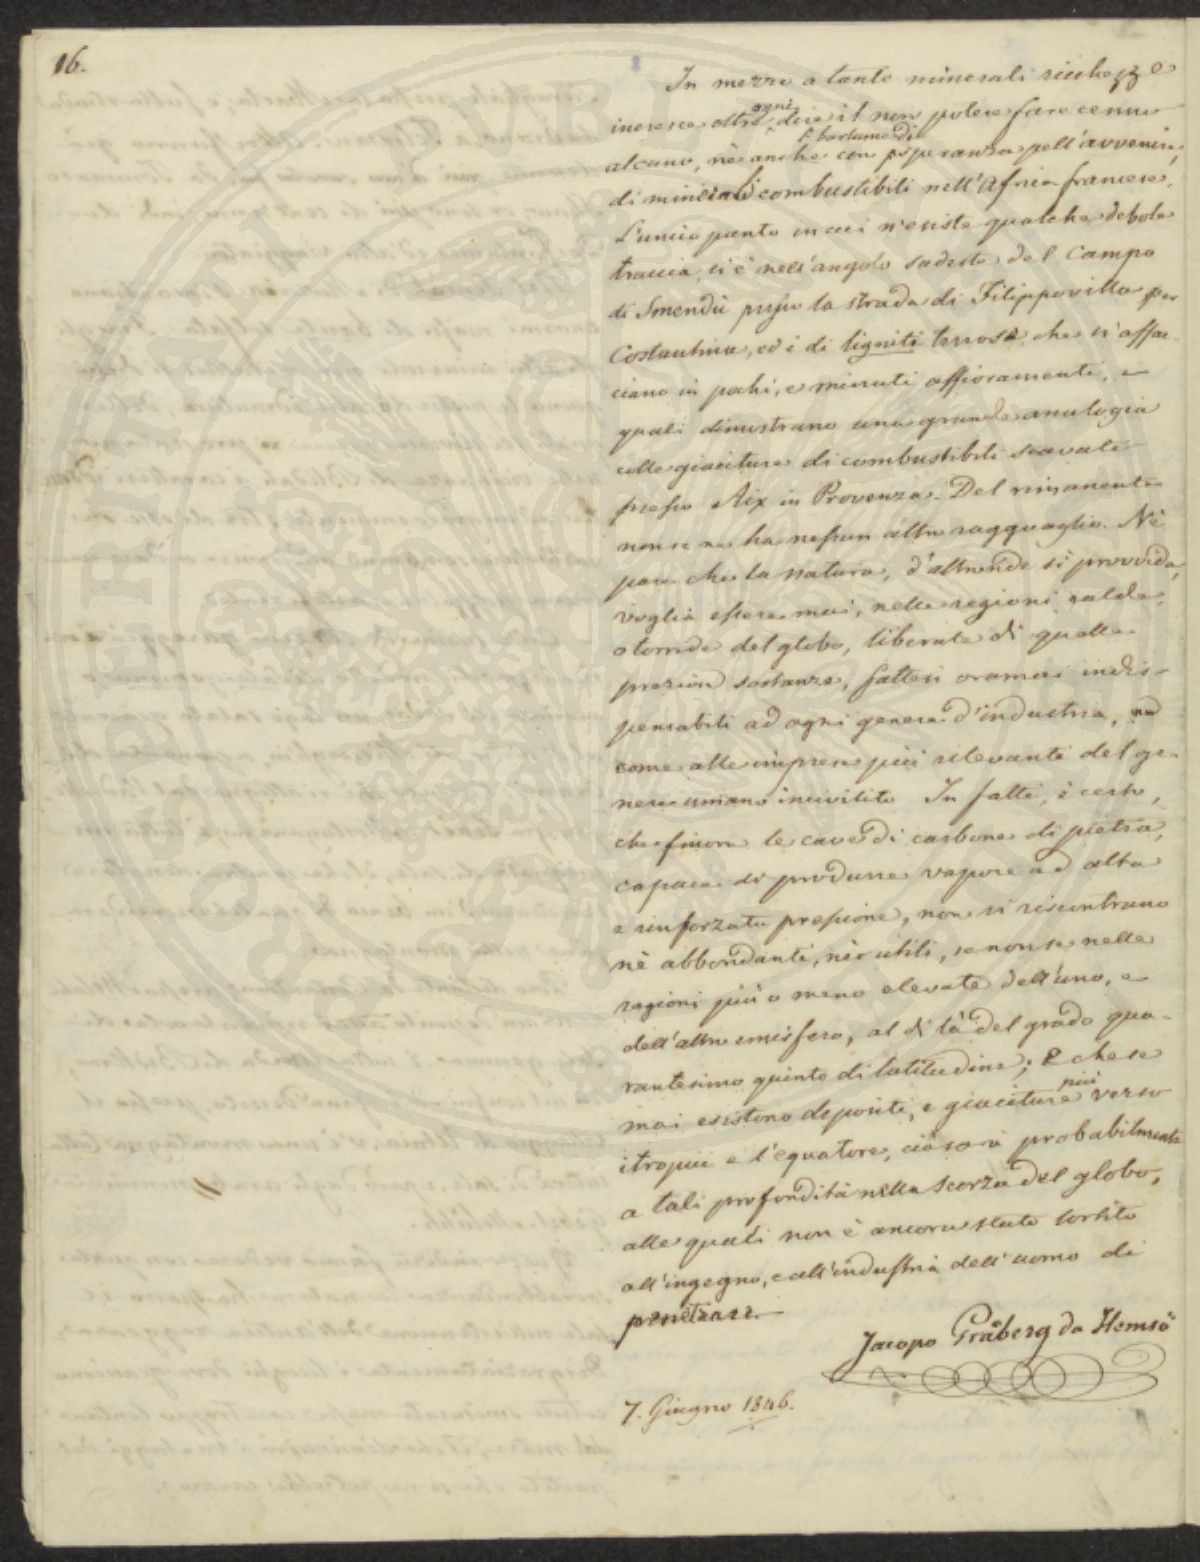 16.
In mezzo a tante minerali ricchezze
incresce oltre ogni dire il non potere fare cenno
alcuno, nè anche con speranza pell'avvenire,
di minerali combustibili nell'Africa francese.
L'unico punto in cui n'esiste qualche debole
traccia, si è nell'angolo sudeste del Campo
di Smendù presso la strada di Filippovilla per
Costantina, ed è di ligniti terrose che s'affac-
ciano in pochi, e minuti affioramenti, e
quali dimostrano una grande analogia
colle giaciture di combustibili scavate
presso Aix in Provenza. Del rimanente
non se ne ha nessun altro ragguaglio. Nè
pare che la natura, d'altronde sì provvida,
voglia essere mai, nelle regioni calde,
o torride del globo, liberale di quelle
preziose sostanze, fattesi oramai indis-
pensabili ad ogni genere d'industria,
come alle imprese più rilevanti del ge-
nere umano incivilito. In fatti, è certo,
che finora le cave di carbone di pietra,
capace di produrre vapore ad alta
e rinforzata pressione, non si riscontrano
nè abbondanti, nè utili, se non se nelle
ragioni più o meno elevate dell'uno, e
dell'altro emisfero, al di là del grado qua-
rantesimo quinto di latitudine; E che se
mai esistono depositi, e giaciture più verso
i tropici e l'equatore, ciò sarà probabilmente
a tali profondità nella scorza del globo,
alle quali non è ancora stato sortito
all'ingegno, e all'industria dell'uomo di
penetrare.
Jacopo Gråberg da Hemsö
7. Giugno 1846.